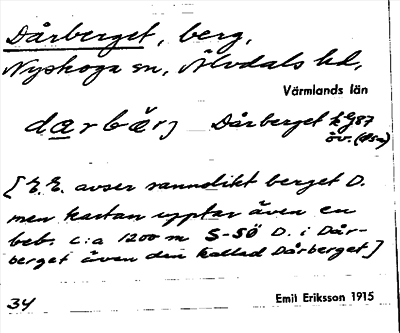 Dårberget, berg,
Nyskoga sn, Älvdals hd,
Värmlands län
darbärj Dårberget kG87
öv.
[E.E. avser sannolikt berget D.
men kartan upptar även en
beb. c:a 1200 m S-SÖ D. i Dår-
berget även den kallad Dårberget]
34 Emil Eriksson 1915